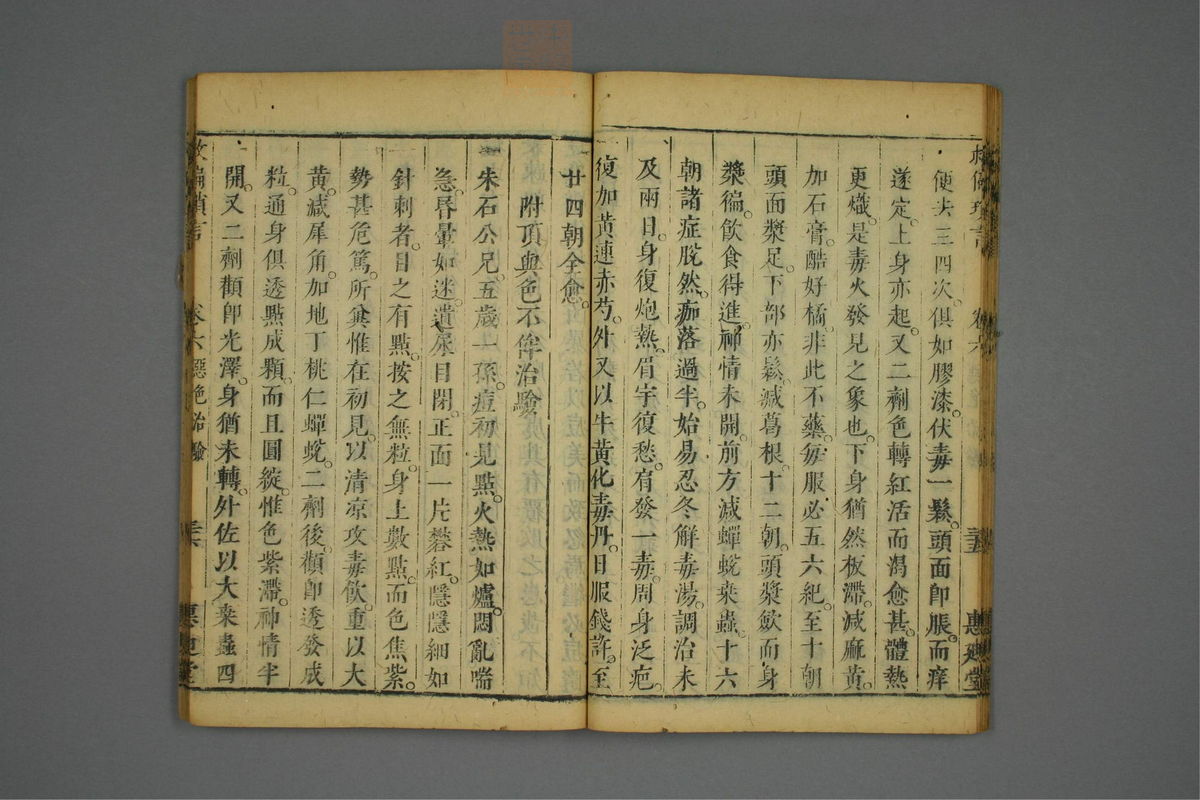 便尖三四次。俱如膠漆。伏毒一鬆。頭面即脹。而痒
遂定。上身亦起。又二劑色轉紅活而渴愈甚。體熱
更熾。是毒火發見之象也。下身猶然板滯。減麻黃。
加石膏。酷好橘。非此不藥。每服必五六紀。至十朝
頭面漿足。下部亦鬆。減葛根。十二朝。頭漿斂而身
漿徧。飲食得進。神情未開。前方減蟬蛻桒蟲。十六
朝諸症脫然。痂落過半。始易忍冬解毒湯。調治未
及兩日。身復炮熱。眉宇復愁。有發一毒。周身泛疤。
復加黃連赤芍。外又以牛黃化毒丹。日服錢許。至
廿四朝全愈。
附頂與色不侔治驗
朱石公兄。五歲一孫。痘初見點。火熱如爐。悶亂喘
急。唇暈如迷。遺尿目閉。正面一片礬紅。隱隱細如
針刺者。目之有點。按之無粒。身上數點。而色焦紫。
勢甚危篤。所兾惟在初見。以清凉攻毒飲。重以大
黃。減犀角。加地丁桃仁蟬蛻。二劑後。顴即透發成
粒。通身俱透點成顆。而且圓綻。惟色紫滯。神情半
開。又二劑顴即光澤。身猶未轉。外佐以大桒蟲四
卷六 惡艳治驗
惠廸堂